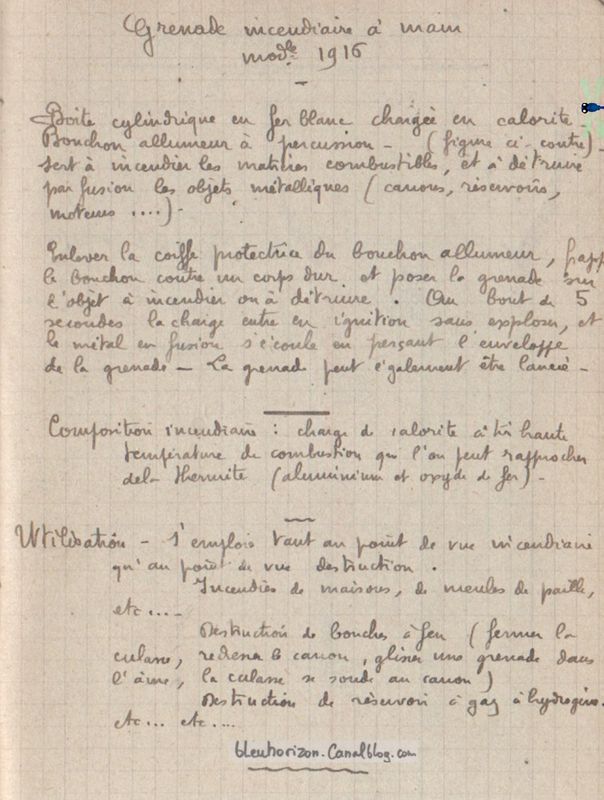 Grenade incendiaire à main
modle 1916
Boîte cylindrique en fer blanc chargée en calorite
Bouchon allumeur à percussion - (figure ci-contre) -
sert à incendier les matières combustibles, et à détruire
par fusion les objets métalliques (canons, réservoirs,
moteurs ....) -
Enlever la coiffe protectrice du bouchon allumeur, frapp
le bouchon contre un corps dur et poser la grenade sur
l'objet à incendier ou à détruire. Au bout de 5
secondes la charge entre en ignition sans exploser, et
le métal en fusion s'écoule en perçant l'enveloppe
de la grenade - La grenade peut également être lancée -
Composition incendiaire : charge de calorite à très haute
température de combustion que l'on peut rapprocher
de la Thermite (aluminium et oxyde de fer) -
Utilisation - S'emploie tant au point de vue incendiaire
qu'au point de vue destruction.
Incendies de maisons, de meules de paille,
etc ....
Destruction de bouches à feu (fermer la
culasse, redresser le canon, glisser une grenade dans
l'âme, la culasse se soude au canon)
Destruction de réservoir à gaz à hydrogène.
etc... etc....
bleuhorizon.Canalblog.com